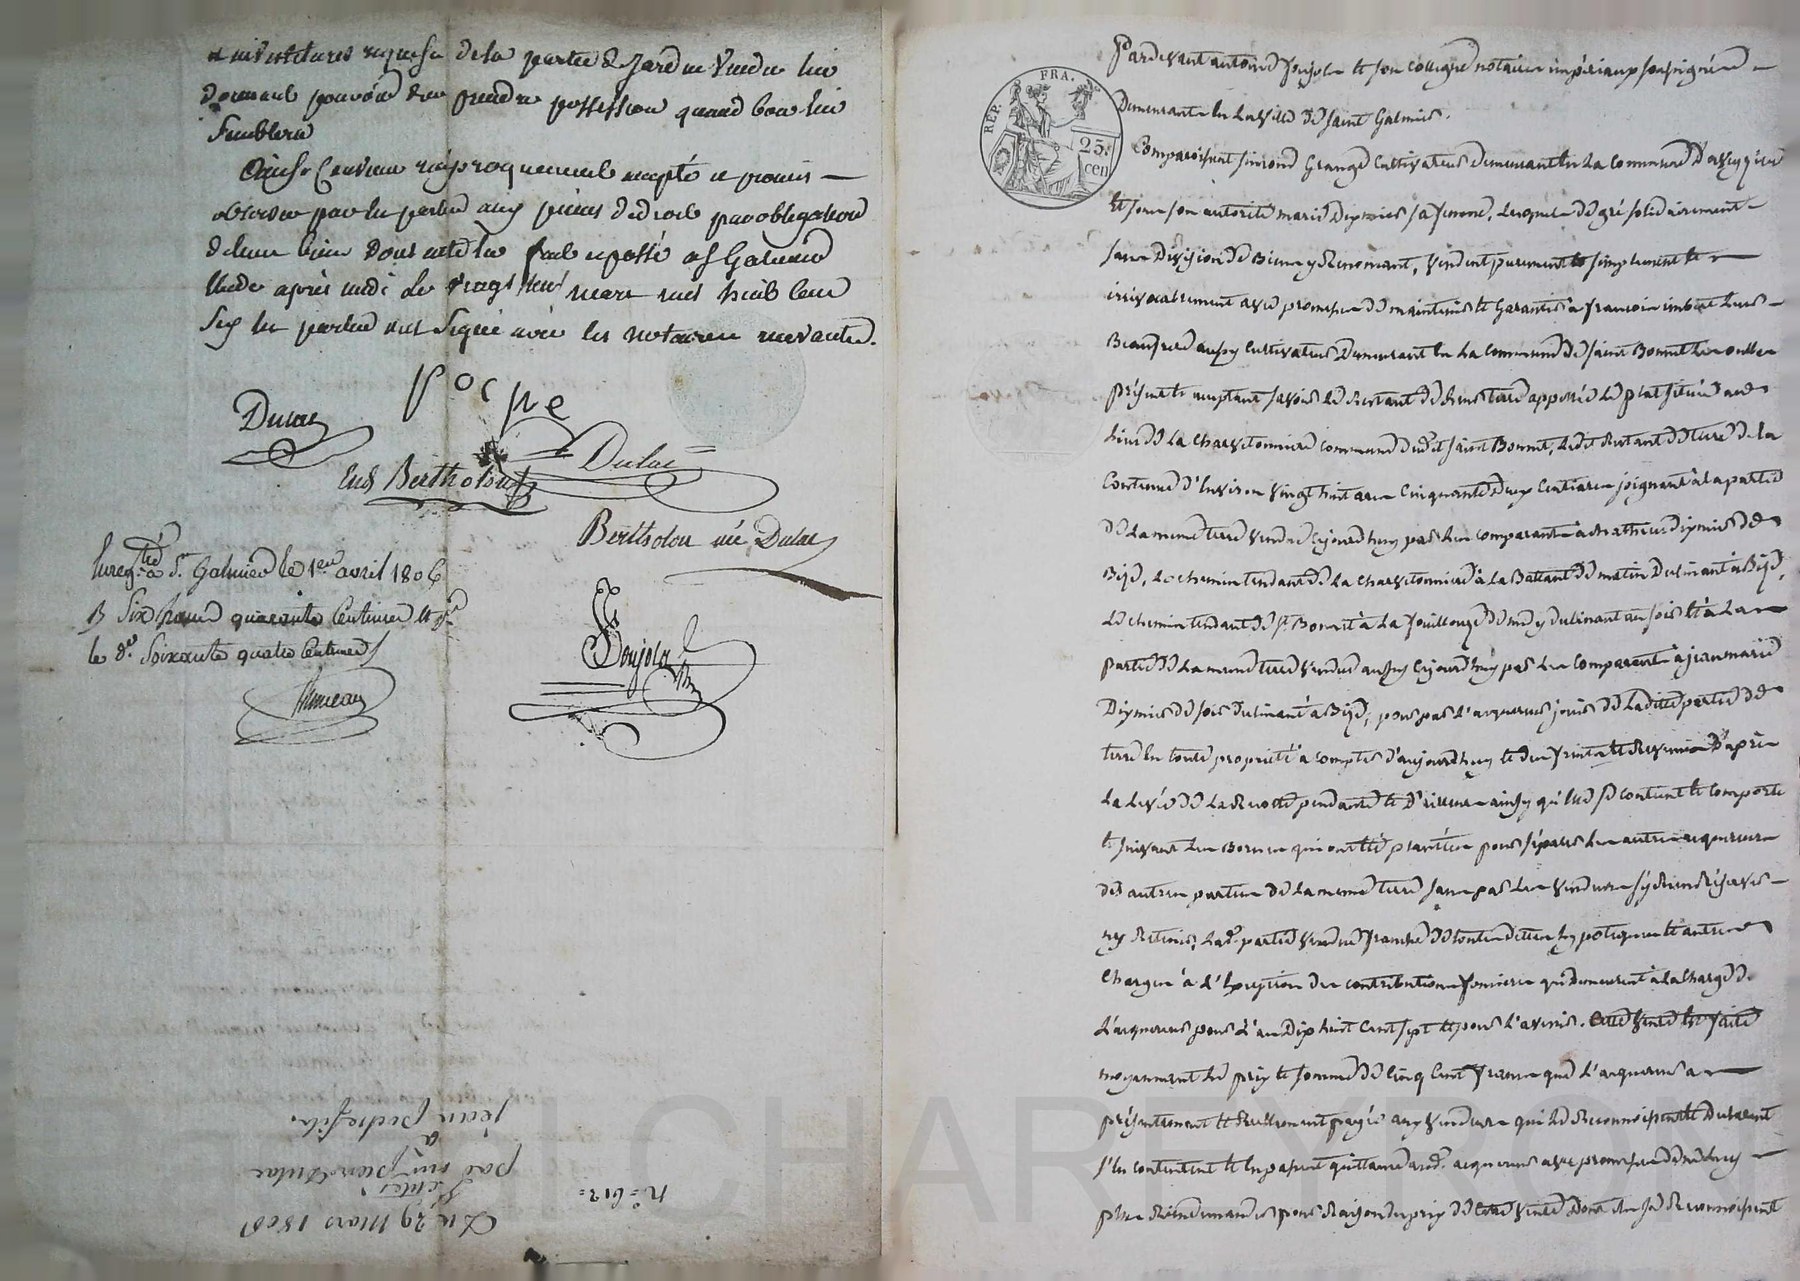 et investitures requise de la partie de jardin vendu lui
donnant pouvoir d'en prendre possession quand bon lui
semblera
Ainsi convenu réciproquement accepté et promis
observer par les parties aux peines de droit par obligation
de leurs biens dont acte lu fait et passé a St Galmier
étude après midi le vingt neuf mars mil huit cent
six les parties ont signé avec les notaires recevants.
Dulac
Dulac
Bertholon
Bertholon née Dulac
Enreg.tré à St. Galmier le 1er avril 1806
R Six francs quarante centimes et pr
le de. Soixante quatre centimes
Poujola
Du 29 Mars 1806
Vente
par pierre Dulac
à
jean
n.° 612=
REP. FRA.
25.
cen
Pardevant antoine Poujola et son collegue notaires impériaux soussignés
Demeurants en la ville de Saint Galmier.
Comparoissent simond Grange cultivateur demeurant en la commune d'aveyzieu
et sous son autorité marie Deymier sa femme, lesquels de gré solidairement
sans division de Biens y Renonçant, vendent purement et simplement et
irrévocablement avec promesse de maintenir et Garantir à françois imbert leur
Beaufrere aussy cultivateur demeurant en la commune de Saint Bonnet les oulles
présent et acceptant savoir le Restant de terre appellée le plat située au
lieu de la charvetonniere commune dudit Saint Bonnet, ledit Restant de terre de la
contenue d'environ vingt huit ares cinquante deux centiares joignant à la partie
de la meme terre vendue cejourd'huy par les comparants à mathieu Deymier de
Bize, le chemin tendant de la charvetonniere à la Battant de matin déclinant à Bize,
le chemin tendant de St. Bonnet à la fouillouze de midy déclinant au soir et à la
partie de la meme terre vendue aussy cejourd'huy par les comparants à jean marie
Deymier de soir déclinant à Bize, pour par l'acquereur jouir de ladite partie de
terre en toute propriété à compter d'aujourd'huy et des fruits et Revenus d'après
la levée de la Recolte pendante et d'ailleurs ainsy qu'elle se contient et comporte
et suivant les Bornes qui ont été plantées pour séparer les autres acquereurs
des autres parties de la meme terre sans par les vendeurs s'y Rien Réserver
ny Retenir, lad. partie vendue franche de toutes dettes hypoteques et autres
charges à l'exception des contributions foncieres qui demeurent à la charge de
l'acquereur pour l'an dix huit cent sept et pour l'avenir. Cette vente est faite
moyennant le prix et somme de cinq cent francs que l'acquereur a
présentement et Réellement payée aux vendeurs qui le Reconnoissent et Duement
s'en contentent et en passent quittance aud. acquereur avec promesse de ne luy
plus Rien demander pour Raison du prix de cette vente dont ils se Reconnoissent